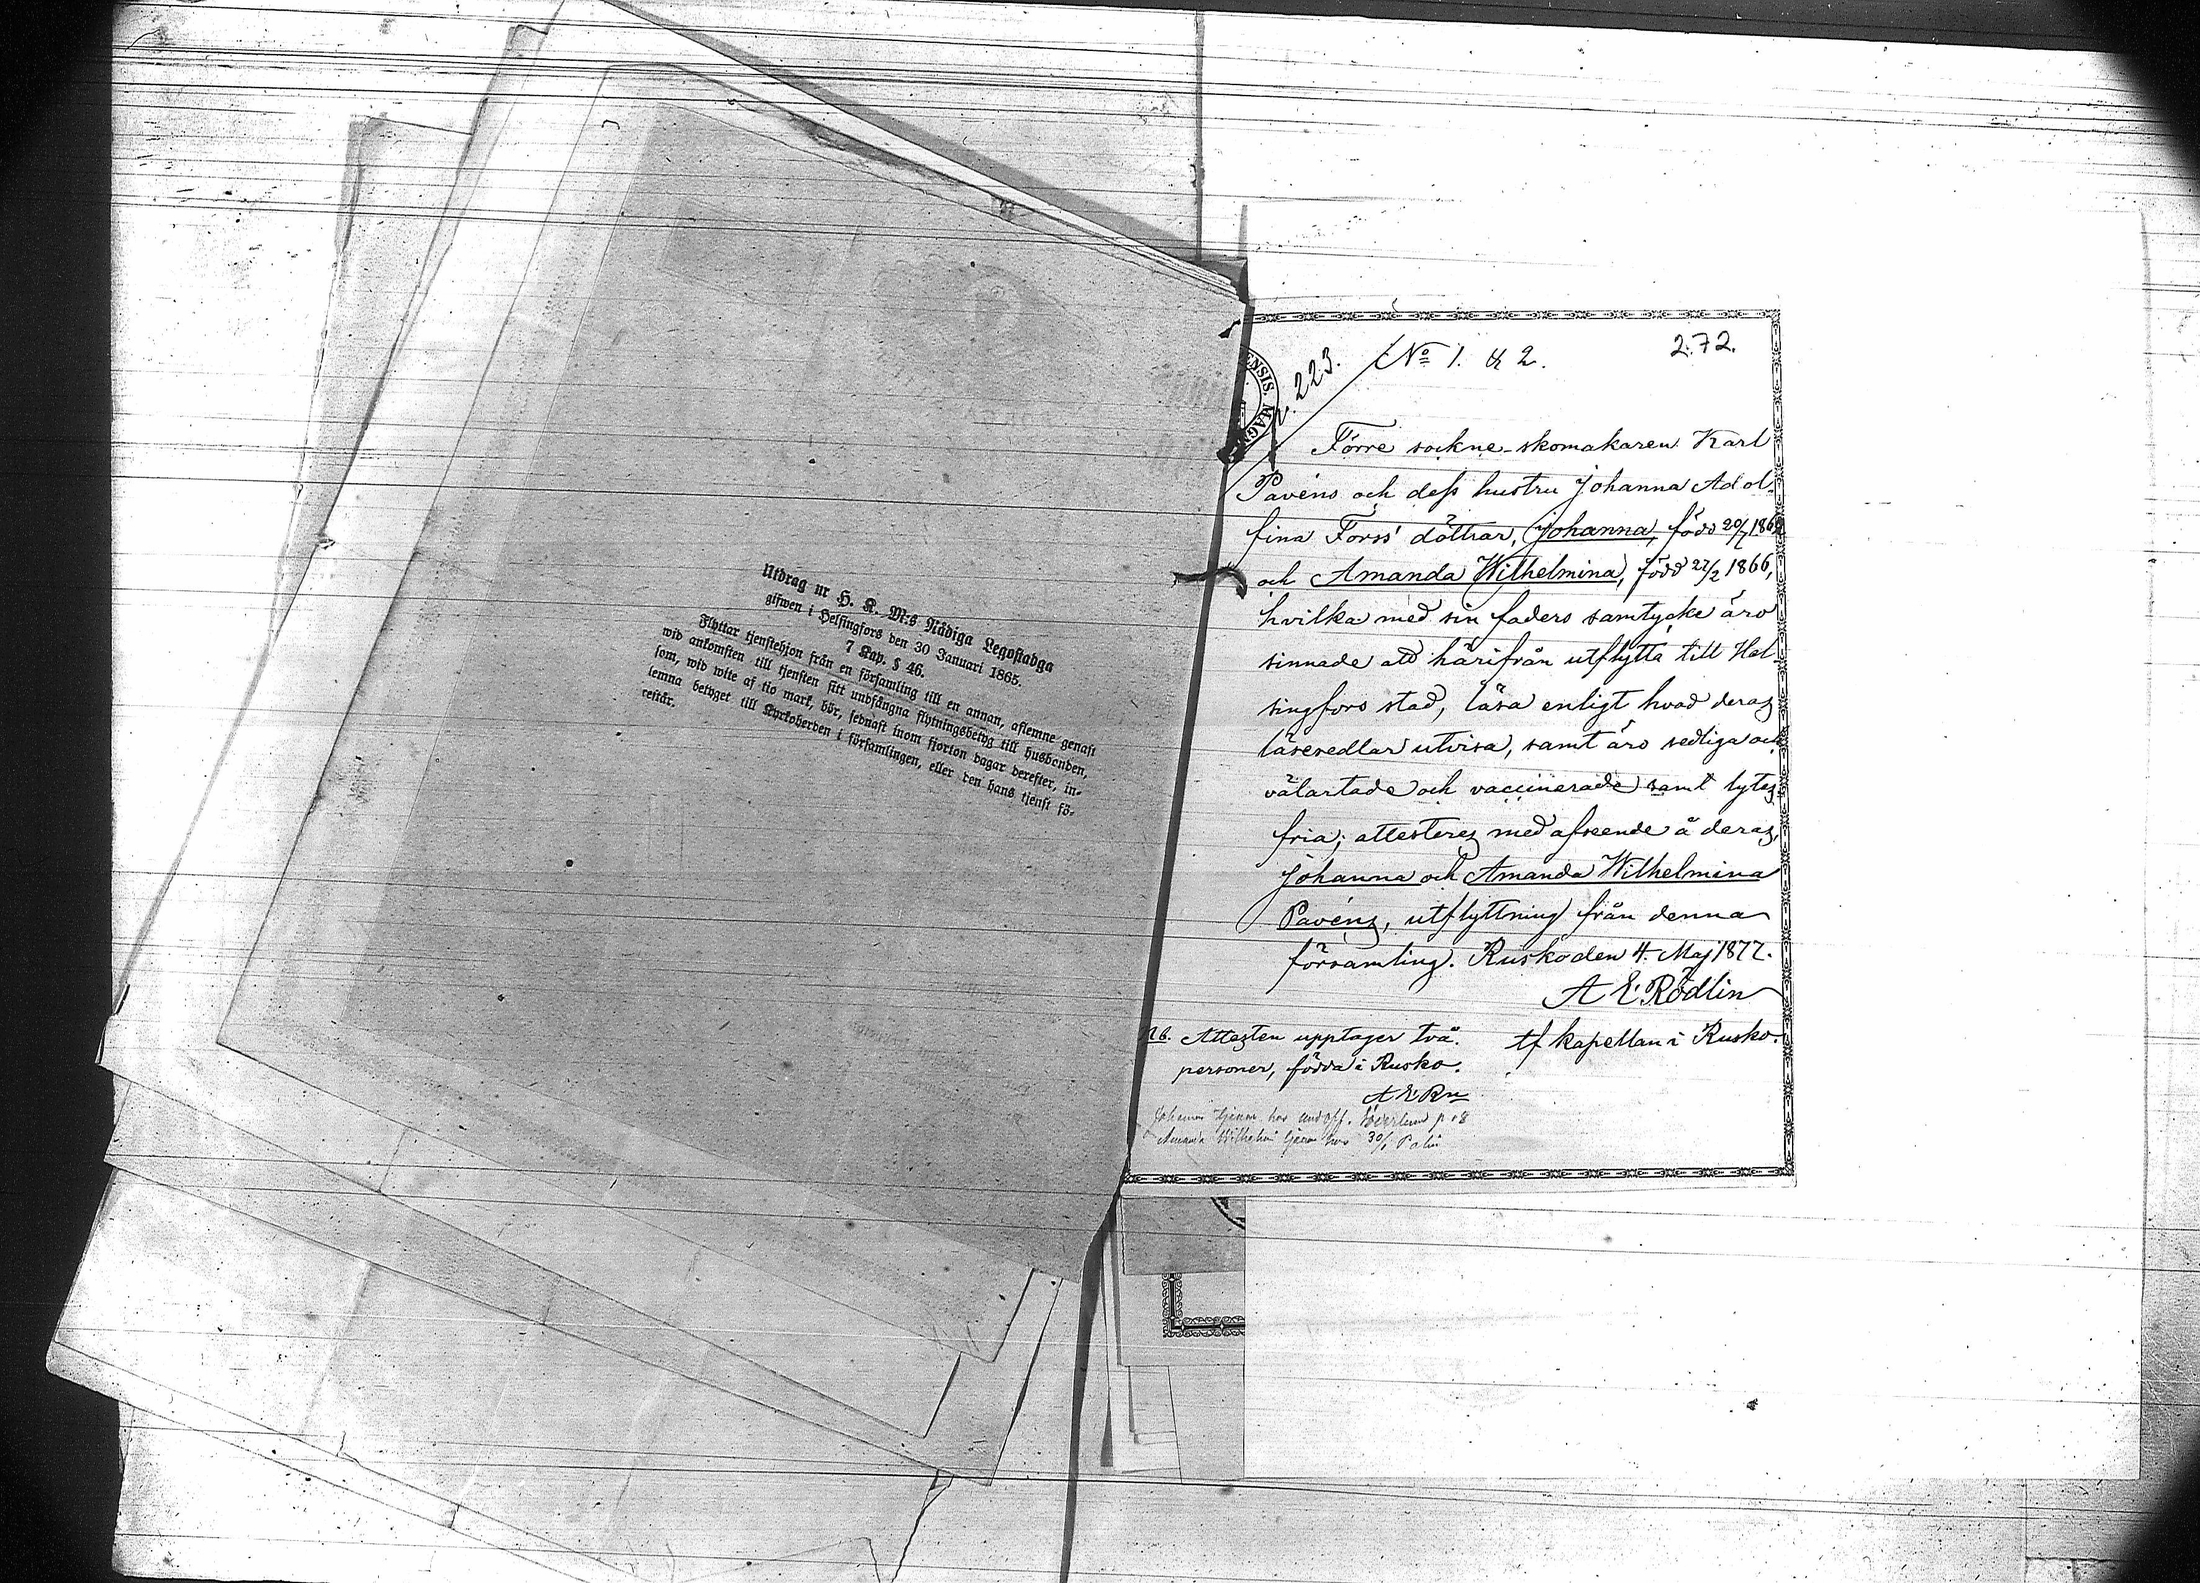 Utdrag ur H. K. M:s Nådiga Legostadga
gifwen i Helsingfors den 30 Januari 1865.
7 Kap. § 46.
Flyttar tjenstehjon från en församling till en annan, aflemne genast
wid ankomsten till tjensten sitt undfångna flytningsbetyg till husbonden,
som, wid wite af tio mark, bör, sednast inom fjorton dagar derefter, in-
lemna betyget till Kyrkoherden i församlingen, eller den hans tjenst fö-
restår.
ENSIS MAGN
223.
No 1. & 2.
272.
Förre sockne-skomakaren Karl
Pavéns och dess hustru Johanna Adol-
fina Forss' döttrar, Johanna, född 20/7 186
och Amanda Wilhelmina, född 27/2 1866,
hvilka med sin faders samtycke äro
sinnade att härifrån utflytta till Hel-
singfors stad, läsa enligt hvad deras
läsesedlar utvisa, samt äro sedliga och
välartade och vaccinerade samt lytes-
fria; attesteras med afseende å deras,
Johanna och Amanda Wilhelmina
Pavéns, utflyttning från denna
församling. Rusko den 4. Maj 1877.
A E Rödlin
tf kapellan i Rusko.
Nb. Attesten upptager två
personer, födda i Rusko.
A E Rn
Johanna tjenar hos
Amanda Wilhelmi tjenar hos